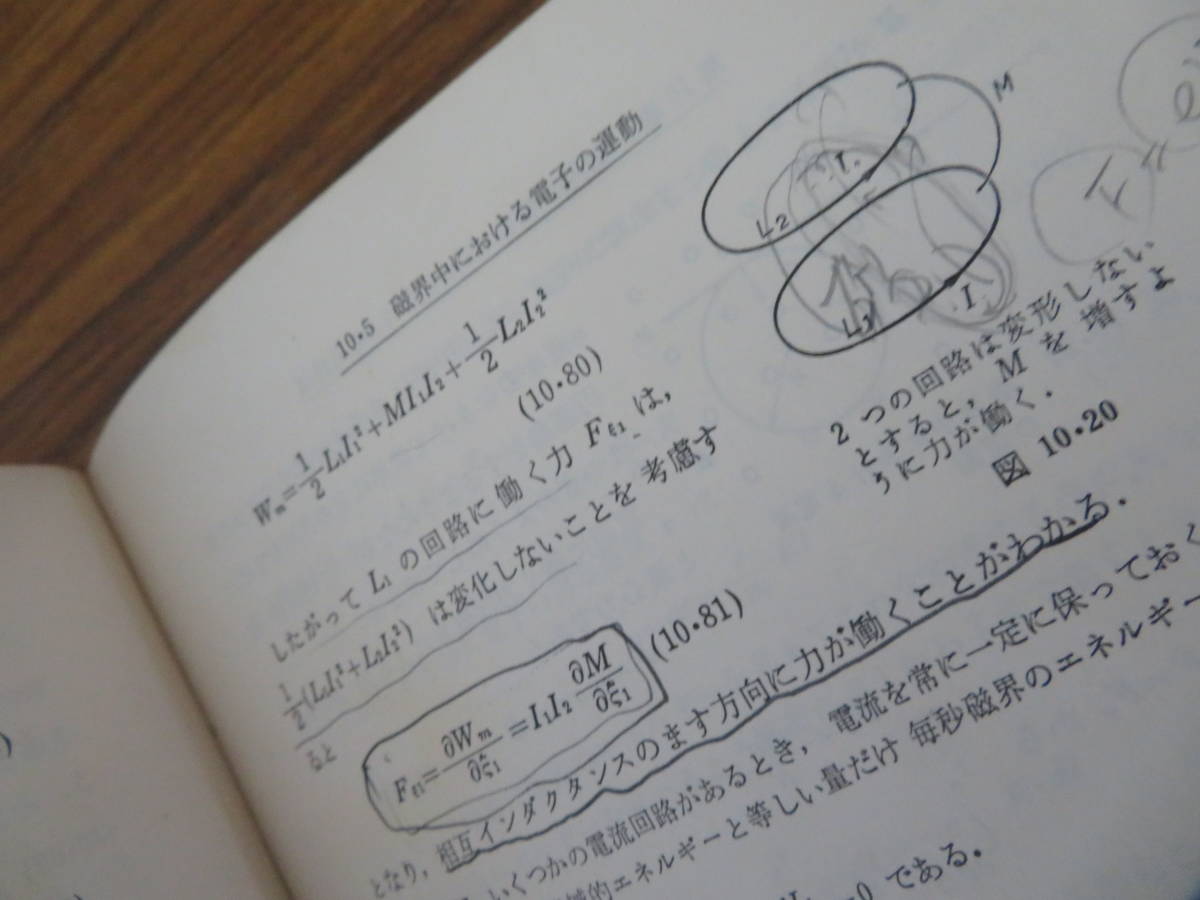 10・5 磁界中における電子の運動
W_m = 1/2 L₁I₁² + MI₁I₂ + 1/2 L₂I₂²
(10・80)
したがって L₁ の回路に働く力 F_ξ₁ は,
1/2 (L₁I₁² + L₂I₂²) は変化しないことを考慮す
ると
F_ξ₁ = ∂W_m/∂ξ₁ = I₁I₂ ∂M/∂ξ₁ (10・81)
となり, 相互インダクタンスのます方向に力が働くことがわかる.
いくつかの電流回路があるとき, 電流を常に一定に保っておく
的エネルギーと等しい量だけ 毎秒磁界のエネルギー
=0 である.
M
L₂
L₁
I
2 つの回路は変形しない
とすると, M を増すよ
うに力が働く.
図 10・20